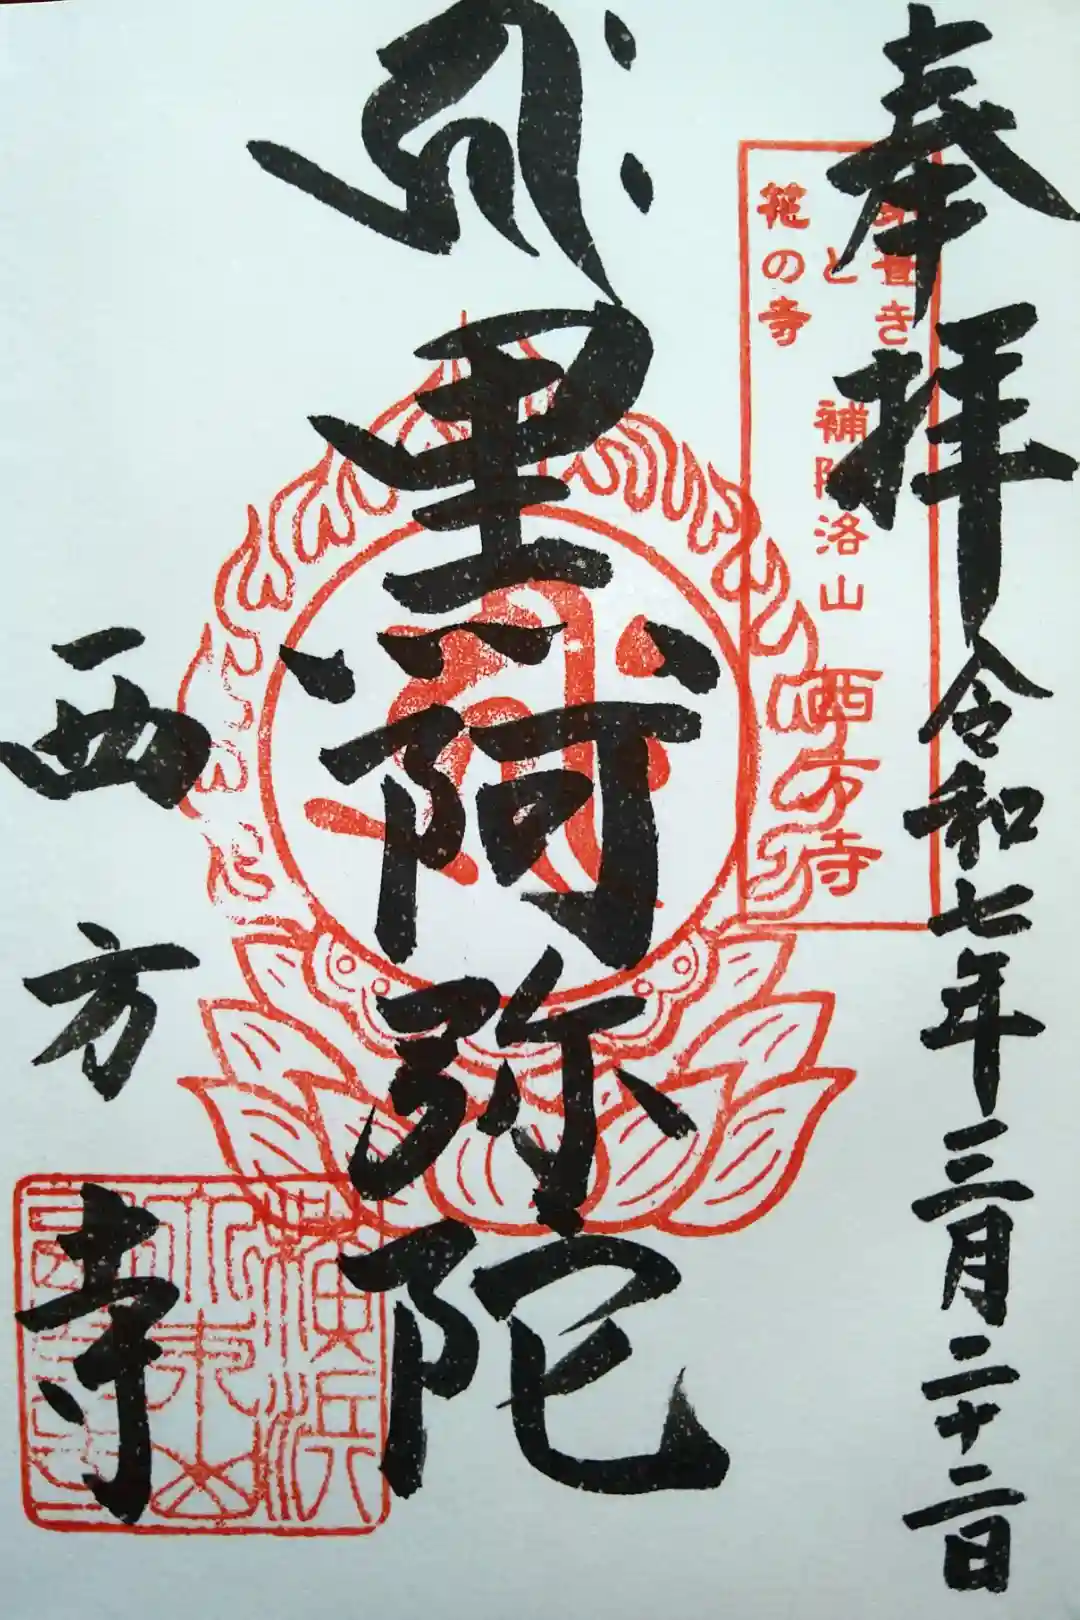 奉拝 令和七年三月二十二日
茅葺き
と 補陀洛山 西方寺
花の寺
ह्रीः 黒阿弥陀
西方寺
横浜